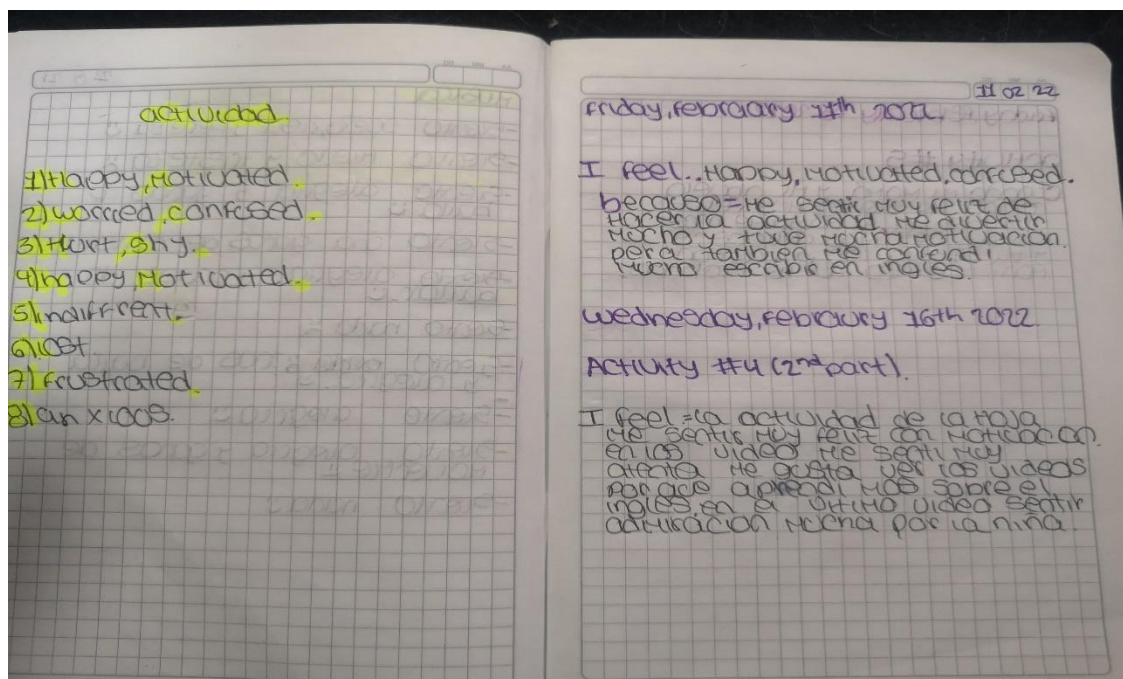 actividad
1) Happy, Motivated.
2) worried, confused.
3) Hurt, shy.
4) happy, Motivated.
5) indiffrent.
6) lost.
7) frustrated.
8) anxious.
11 02 22
Friday, february 11th 2022.
I feel.. Happy, Motivated, confused.
because = Me sentir Muy feliz de
Hacer la actividad Me divertir
Mucho y tuve Mucha Motivacion.
pera tanbien Me confundi
Mucho escribir en ingles.
Wednesday, Febraury 16th 2022.
Activity #4 (2nd part).
I feel = la actividad de la Hoja
Me sentir Muy feliz con Motivacion.
en los videos Me senti Muy
atenta Me gusta ver los videos
por que aprendi Mas sobre el
ingles. en el ultimo video sentir
admiracion Mucha por la niña.